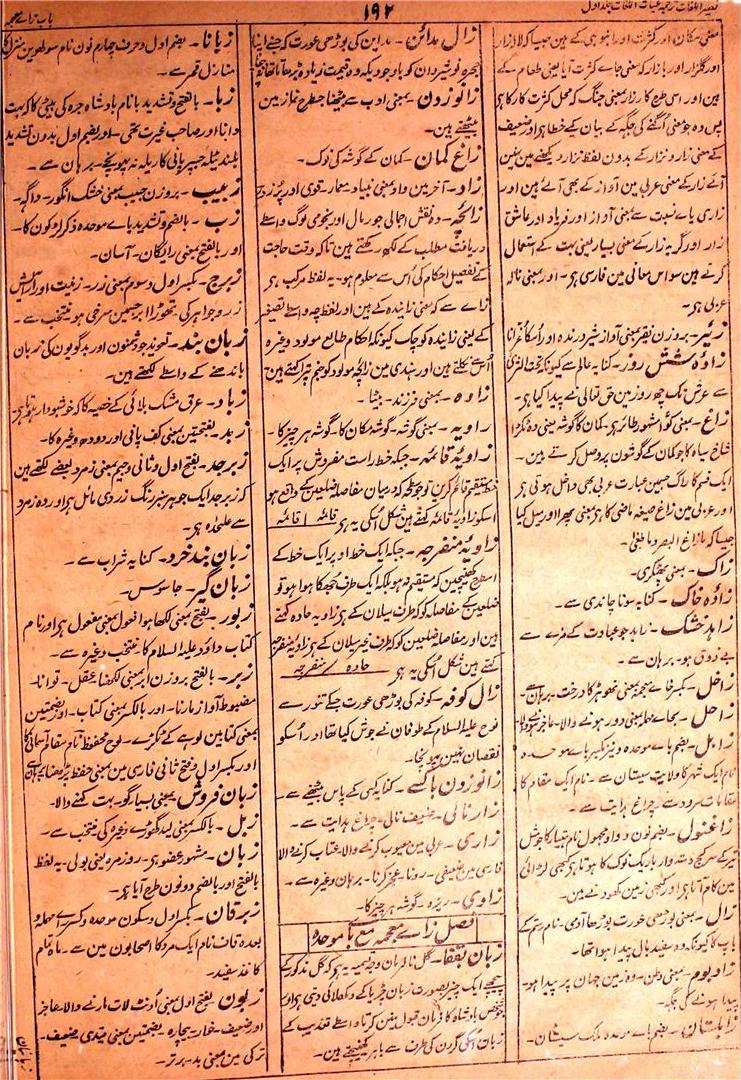 باب زاے معجمہ
۱۹۲
نصیر اللغات ترجمہ غیاث اللغات جلد اول
معنی مکان اور کثرت اور انبوہی کے ہین جیسا کہ لالہ زار
اور گلزار اور بازار کہ معنی جاے کثرت آبا یعنی طعام کے
ہین اور اسی طرح کارزار بمعنی جنگ کہ محل کثرت کار کا ہی
پس وہ جو معنی اُگنے کی جگہ کے بیان کیے خطا ہی اور ضعیف
کے معنی زار و نزار کے بدون لفظ نزار دیکھنے مین نہین
آئے زار کے معنی عربی مین آواز کے بھی آئے ہین اور
زاری یاے نسبت سے بمعنی آواز اور فریاد اور عاشق
زار اور گریہ زار کے معنی بسیار یعنی بہت کے استعمال
کرتے ہین سو اس معانی مین فارسی ہی۔ اور بمعنی نالہ
عربی ہی۔
زئیر۔ بروزن نفیر بمعنی آواز شیر درندہ اور اُسکا غرانا
زادۂ شش روز۔ کنایہ عالم سے کیونکہ تحت الثریٰ
سے عرش تک چھ روز مین حق تعالیٰ نے پیدا کیا ہی۔
زاغ۔ بمعنی کوّا مشہور طائر ہی۔ کمان کا گوشہ یعنی وہ ٹکڑا
شاخ سیاہ کا جو کمان کے گوشون پر وصل کرتے ہین۔
ایک قسم کا راگ جسمین عبارت عربی بھی داخل ہوتی ہی
اور عربی مین زاغ صیغہ ماضی کا ہی بمعنی پھرا اور میل کیا
جیسا کہ مازاغ البصر وما طغی۔
زاک۔ بمعنی پھٹکری۔
زادۂ خاک۔ کنایہ سونا چاندی سے۔
زاہد خشک۔ زاہد جو عبادت کے مزے سے
بے ذوق ہو۔ برہان سے۔
زاخل۔ بکسر خاے معجمہ بمعنی تھوہڑ کا درخت۔ برہان سے۔
زاحل۔ بحاے مہملہ بمعنی دور ہونے والا۔ عاجز
زابل۔ بضم باے موحدہ و نیز بکسر باے موحدہ
نام ایک شہر کا ولایت سیستان سے۔ نام ایک مقام کا
مقامات سرود سے۔ چراغ ہدایت سے۔
زاغنول۔ بضم نون و واو مجہول نام ہتیار کا جو ش
تبر کے سر کج دستہ دار باریک نوک کا ہوتا ہی کبھی لڑائی
مین کام آتا ہی اور کبھی زمین کھودنے مین۔
زال۔ بمعنی بوڑھی عورت بوڑھا آدمی۔ نام رستم کے
باپ کا کیونکہ وہ سفید بال پیدا ہوا تھا۔
زاد بوم۔ بمعنی وطن۔ وہ زمین جہان پر پیدا ہو۔
پیدا ہونے کی جگہ۔
زابلستان۔ بضم باے موحدہ ملک سیستان۔
زال مدائن۔ مداین کی بوڑھی عورت کہ جسنے اپنا
حجرہ نوشیروان کو باوجودیکہ وہ قیمت زیادہ بڑھاتا تھا نہ
زانوزون۔ بمعنی ادب سے بیٹھنا جسطرح نماز مین
بیٹھتے ہین۔
زاغ کمان۔ کمان کے گوشہ کی نوک۔
زاو۔ آخر مین واو بمعنی بنیاد و معمار۔ قوی اور پُرزور
زائچہ۔ وہ نقش اجمالی جو رمال اور نجومی لوگ واسطے
دریافت مطلب کے لکھ رکھتے ہین تاکہ وقت حاجت
کے تفصیل احکام کی اُس سے معلوم ہو۔ یہ لفظ مرکب ہی
زاے سے کہ بمعنی زایندہ کے ہین اور لفظ چہ واسطے تصغیر
کے یعنی زایندہ کوچک کیونکہ احکام طالع مولود وغیرہ
اُس سے نکلتے ہین اور ہندی مین زائچہ مولود کو جنم پترا کہتے ہین
زادہ۔ بمعنی فرزند۔ بیٹا۔
زاویہ۔ بمعنی گوشہ۔ گوشہ مکان کا۔ گوشہ ہر چیز کا۔
زاویۂ قائمہ۔ جبکہ خط راست مفروش پر ایک
خط مستقیم قائم کرین تو جو سطح کہ درمیان مفاصلہ ضلعین کے واقع ہو
اُسکو زاویۂ قائمہ کہتے ہین شکل اُسکی یہ ہی قائمہ | قائمہ
زاویۂ منفرجہ۔ جبکہ ایک خط اوپر ایک خط کے
اسطرح کھینچین کہ مستقیم نہو بلکہ ایک طرف جھکا ہوا ہو تو
ضلعین کے مفاصلہ کو کہ طرف میلان کے ہی زاویہ حادہ کہتے
ہین اور مفاصلہ ضلعین کو کہ طرف غیر میلان کے ہی زاویۂ منفرجہ
کہتے ہین شکل اُسکی یہ ہی حادہ / منفرجہ
زال کوفہ۔ کوفہ کی بوڑھی عورت جسکے تنور سے
نوح علیہ السلام کے طوفان نے جوش کیا تھا اور اُسکو
نقصان نہین پہونچا۔
زانوزون باکسے۔ کنایہ کسی کے پاس بیٹھنے سے
زار نالی۔ ضعیف نالی۔ چراغ ہدایت سے۔
زاری۔ عربی مین عیوب کرنے والا عتاب کرنیوالا
فارسی مین ضعیفی۔ رونا۔ عجز کرنا۔ برہان وغیرہ سے۔
زاوی۔ ریزہ۔ گوشہ ہر چیز کا۔
فصل زاے معجمہ مع باے موحدہ
زبان بقفا۔ گل نافرمان وجہ تسمیہ یہ ہی کہ گل مذکور کے
پیچھے ایک چیز بصورت زبان چڑیا کے دکھلائی دیتی ہی اور
جو شخص بادشاہ کا فرمان قبول نہین کرتا واسطے تعذیب کے
زبان اُسکی گردن کی طرف سے باہر کھینچتے ہین۔
زبانا۔ بضم اول و حرف چہارم نون نام سولھوین منزل کا
منازل قمر سے۔
زبا۔ بالفتح و تشدید با نام بادشاہ حیرہ کی بیٹی کا کہ بہت
دانا اور صاحب غیرت تھی۔ اور بضم اول بدون تشدید
بلند ٹیلہ جسپر پانی کا ریلہ نہ پہونچے۔ برہان سے۔
زبیب۔ بروزن حبیب بمعنی خشک انگور۔ داگہ۔
زب۔ بالضم و تشدید باے موحدہ ذکر لڑکون کا۔
اور بالفتح بمعنی رائگان۔ آسان۔
زبرج۔ بکسر اول و سوم بمعنی زر۔ زینت اور آرایش
زر و جواہر کی۔ تھوڑا ابر جسمین سرخی ہو۔ منتخب سے۔
زبان بند۔ تعویذ جو دشمنون اور بدگویون کی زبان
باندھنے کے واسطے لکھتے ہین۔
زباد۔ عرق مشک بلائی کے خصیہ کا کہ خوشبودار ہوتا ہی
زبد۔ بفتحتین بمعنی کف پانی اور دودھ وغیرہ کا۔
زبرجد۔ بفتح اول و ثانی و جیم بمعنی زمرد بعضے لکھتے ہین
کہ زبرجد ایک جوہر سبز رنگ زردی مائل ہی اور وہ زمرد
سے علٰحدہ ہی۔
زبان بند خرد۔ کنایہ شراب سے۔
زبان گیر۔ جاسوس۔
زبور۔ بفتح بمعنی لکھا ہوا فعول بمعنی مفعول ہی اور نام
کتاب داؤد علیہ السلام کا۔ منتخب وغیرہ سے۔
زبر۔ بالفتح بروزن ابر بمعنی لکھنا۔ عقل۔ توانا۔
مضبوط آواز مارنا۔ اور بالکسر بمعنی کتاب۔ اور بضمتین
بمعنی کتابین لوہے کے ٹکڑے۔ لوح محفوظ
اور بکسر اول و فتح ثانی فارسی مین بمعنی حفظ پڑھنا
زبان فروش۔ بمعنی بسیار گو۔ بہت کہنے والا۔
زبل۔ بالکسر بمعنی لید گھوڑے وغیرہ کی منتخب سے۔
زبان۔ مشہور عضو ہی۔ روزمرہ یعنی بولی۔ یہ لفظ
بالفتح اور بالضم دونون طرح آیا ہی۔
زبرقان۔ بکسر اول و سکون موحدہ و کسر راے مہملہ و
بعدہ قاف نام ایک مرد کا اصحابون مین سے۔ ماہ تمام
کاغذ سفید۔
زبون۔ بفتح اول بمعنی اُونٹ لات مارنے والا۔ عاجز
اور ضعیف۔ خوار۔ بیچارہ۔ بضمتین بمعنی قیدی ضعیف۔
ترکی مین بمعنی بد۔ برتر۔